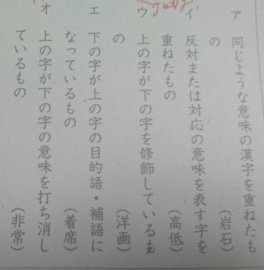 ア 同じような意味の漢字を重ねたも
の（岩石）
イ 反対または対応の意味を表す字を
重ねたもの（高低）
ウ 上の字が下の字を修飾しているも
の（洋画）
エ 下の字が上の字の目的語・補語に
なっているもの（着席）
オ 上の字が下の字の意味を打ち消し
ているもの（非常）